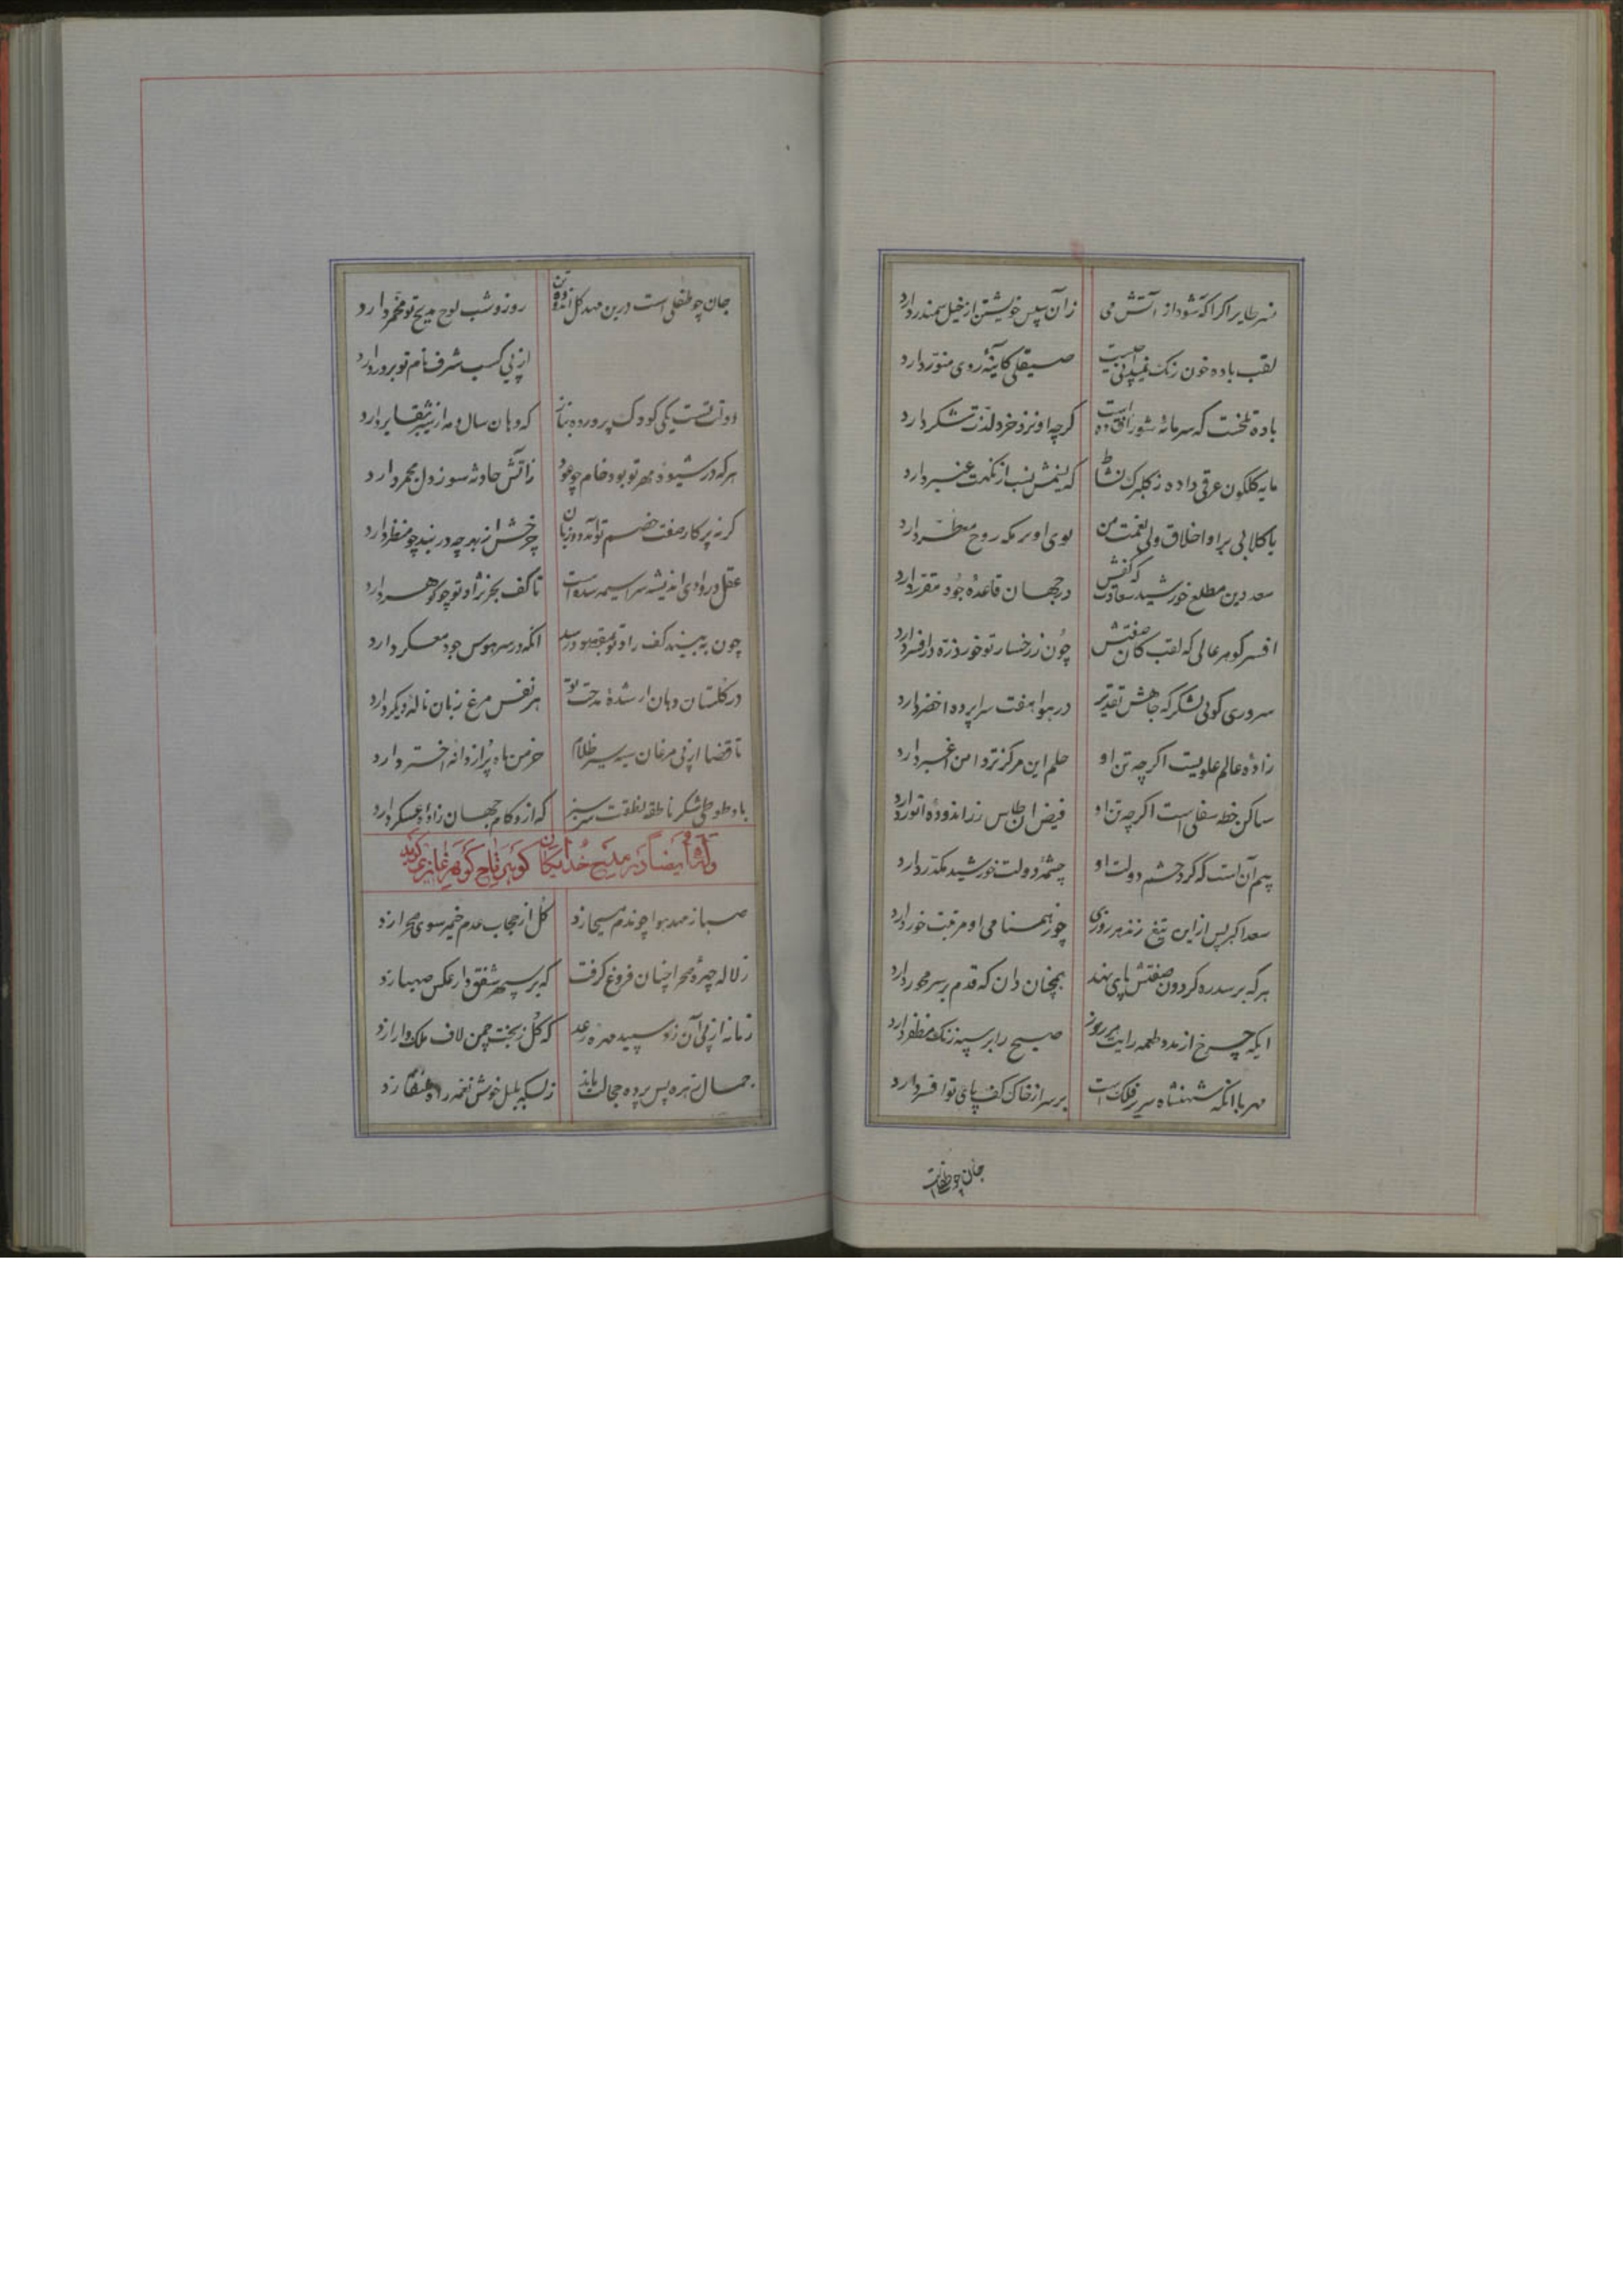 نسر طایر اگر آگه شود از آتش می زان سپس خویشتن از خیل سمندر دارد
لقب باده خون رنگ نمیدانی چیست صیقلی کاینهٔ روی منور دارد
باده تلخست که سرمایهٔ شور افتاده است گرچه او نزد خرد لذت شکر دارد
مایه گلگون عرقی داده ز گلبرگ نشاط که نسب از نکهت عنبر دارد
با گلابی براو اخلاق ولی نعمت من بوی او بر مکه روح معطر دارد
سعد دین مطلع خورشید سعادت که کفش در جهان قاعدهٔ جود مقرر دارد
افسر گوهر عالی که لقب کان صفتش چون زر خسار تو خور ذره در افسر دارد
سروری کوبی لشکر که جاهش تقدیر در هوا هفت سراپرده اخضر دارد
زادهٔ عالم علویست اگرچه تن او حلم این مرکز تردامن اغبر دارد
ساکن خطه سفلی است اگرچه تن او فیض ان طاس زراندودهٔ انور دارد
بیم آن است که گرد حشم دولت او چشمهٔ دولت خورشید مکدر دارد
سعد اکبر پس از این تیغ زند هر روزی چون همنامی او مرتبت خور دارد
هرکه بر سدره گردون صفتش پای نهد همچنان دان که قدم بر سر محور دارد
ایکه چرخ از مدد طعمه رایت هر روز صبح را بر سپه زنگ مظفر دارد
مهر با آنکه شهنشاه سریر فلک است بر سر از خاک کف پای تو افسر دارد
جان چو طفلی است
جان چو طفلی است درین مهد گل اندودهٔ تن روز و شب لوح مدیح تو دارد
از پی کسب شرف نام تو بر در دارد
دوات تست یکی کودک پرورده بناز که دهان سال و مه از شیر بقا بر دارد
هرکه در شیوهٔ مهر تو بود خام چو عود زاتش حادثه سوز دل مجمر دارد
گر نه پرکار صفت خصم تو آمد دو زبان چرخش از بهر چه در بند چو مسطر دارد
عقل در وادی اندیشه سراسیمه شده است تا کف بحر نژاد تو چو گوهر دارد
چون به بیند کف راد تو بمقصود رسد آنکه در سر هوس جود معسکر دارد
در گلستان دهان ار شدهٔ مدحت تو هر نفس مرغ زبان نالهٔ دیگر دارد
تا قضا از پی مرغان سیه سیر ظلام خرمن ماه پر از دانه اختر دارد
باد طوطی شکر ناطقه لفظت سرسبز که ازو کام جهان زاد عسکر دارد
وله ایضاً در مدیح خدایگان گوهر تاج گوهر غازی گوید
صبا ز مهد هوا چون دم مسیحا زد گل از حجاب عدم خیمه سوی صحرا زد
ز لاله چهرهٔ صحرا چنان فروغ گرفت که بر سپهر شفق وار عکس صهبا زد
زمانه از پی آن زد سپید مهره رعد که گل ز تخت چمن لاف ملک دارا زد
جمال زهره پس پرده خجالت ماند ز بسکه بلبل خوش نغمه راه عنقا زد